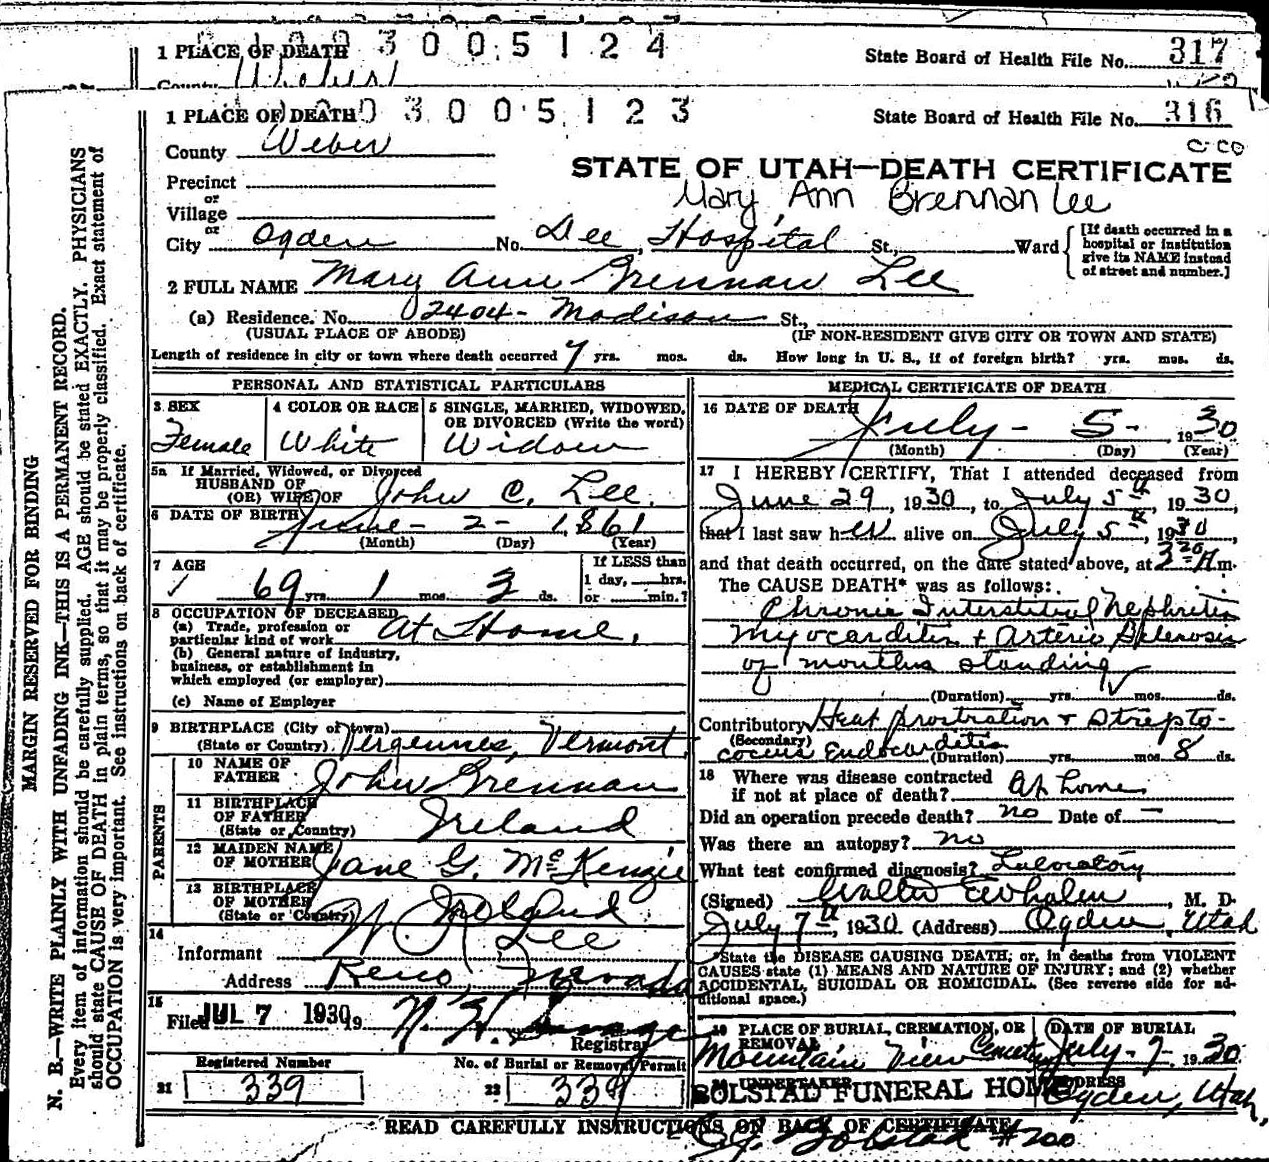 1 PLACE OF DEATH 3005124 State Board of Health File No. 317
County Weber
1 PLACE OF DEATH 3005123 State Board of Health File No. 316
County Weber
STATE OF UTAH—DEATH CERTIFICATE
Precinct
Mary Ann Brennan Lee
or
Village
or
City Ogden No. Dee Hospital St., Ward
[If death occurred in a hospital or institution give its NAME instead of street and number.]
2 FULL NAME Mary Ann Brennan Lee
(a) Residence. No. 2404- Madison St.,
(USUAL PLACE OF ABODE) (IF NON-RESIDENT GIVE CITY OR TOWN AND STATE)
Length of residence in city or town where death occurred 7 yrs. mos. ds. How long in U. S., if of foreign birth? yrs. mos. ds.
PERSONAL AND STATISTICAL PARTICULARS
3 SEX Female
4 COLOR OR RACE White
5 SINGLE, MARRIED, WIDOWED, OR DIVORCED (Write the word) Widow
5a If Married, Widowed, or Divorced
HUSBAND OF
(OR) WIFE OF John C. Lee.
6 DATE OF BIRTH June - 2 - 1861
(Month) (Day) (Year)
7 AGE 69 yrs. 1 mos. 3 ds.
If LESS than 1 day, hrs. or min.?
8 OCCUPATION OF DECEASED
(a) Trade, profession or particular kind of work At Home,
(b) General nature of industry, business, or establishment in which employed (or employer)
(c) Name of Employer
9 BIRTHPLACE (City or town)
(State or Country). Vergennes, Vermont.
PARENTS
10 NAME OF FATHER John Brennan
11 BIRTHPLACE OF FATHER (State or Country) Ireland
12 MAIDEN NAME OF MOTHER Jane G. McKenzie
13 BIRTHPLACE OF MOTHER (State or Country) Ireland
14
Informant W. R. Lee
Address Reno, Nevada
15
Filed JUL 7 1930 19
N. H. Savage
Registrar
Registered Number
21 339
No. of Burial or Removal Permit
22 339
MEDICAL CERTIFICATE OF DEATH
16 DATE OF DEATH July - 5 - 1930
(Month) (Day) (Year)
17 I HEREBY CERTIFY, That I attended deceased from
June 29, 1930, to July 5th, 1930,
that I last saw her alive on July 5th, 1930,
and that death occurred, on the date stated above, at 3 20 A m.
The CAUSE DEATH* was as follows:
Chronic Interstitial Nephritis
Myocarditis + Arterio Sclerosis
of months standing
(Duration) yrs. mos. ds.
Contributory Heat prostration + Strepto-
(Secondary)
coccus Endocarditis (Duration) yrs. mos. 8 ds.
18 Where was disease contracted
if not at place of death? At home
Did an operation precede death? no Date of —
Was there an autopsy? no
What test confirmed diagnosis? Laboratory
(Signed) Walter E Whalen, M. D.
July 7th, 1930. (Address) Ogden, Utah
*State the DISEASE CAUSING DEATH; or, in deaths from VIOLENT
CAUSES state (1) MEANS AND NATURE OF INJURY; and (2) whether
ACCIDENTAL, SUICIDAL OR HOMICIDAL. (See reverse side for ad-
ditional space.)
19 PLACE OF BURIAL, CREMATION, OR REMOVAL Mountain View Cemetery
DATE OF BURIAL July - 7 - 1930
20 UNDERTAKER
BOLSTAD FUNERAL HOME
ADDRESS Ogden, Utah,
READ CAREFULLY INSTRUCTIONS ON BACK OF CERTIFICATE
Bolstad #200
MARGIN RESERVED FOR BINDING
N. B.—WRITE PLAINLY WITH UNFADING INK—THIS IS A PERMANENT RECORD.
Every item of information should be carefully supplied. AGE should be stated EXACTLY. PHYSICIANS
should state CAUSE OF DEATH in plain terms, so that it may be properly classified. Exact statement of
OCCUPATION is very important. See instructions on back of certificate.